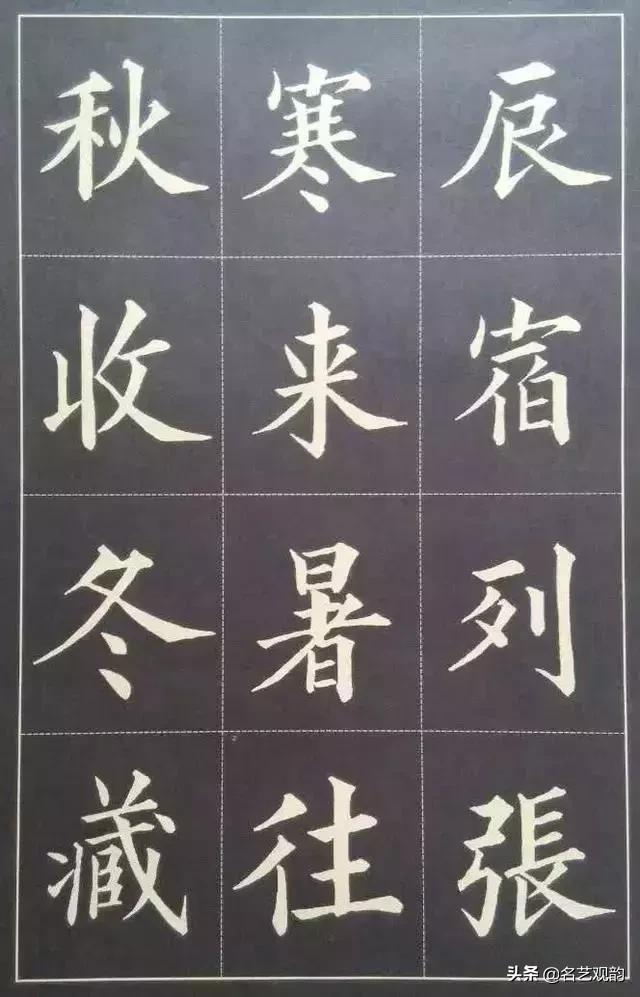 辰宿列張
寒来暑往
秋收冬藏
头条 @名艺观韵